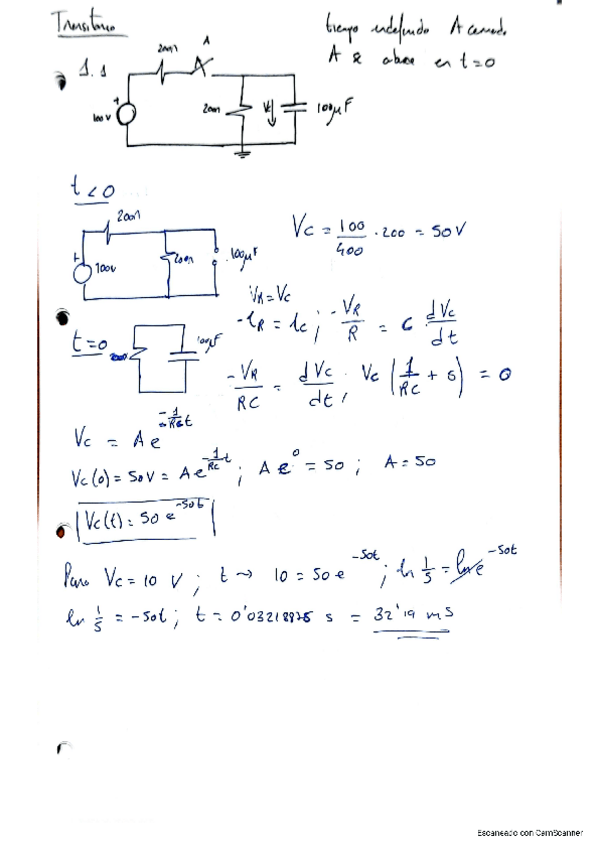 Transitorio
tiempo indefinido A cerrado
A se abre en t=0
1.1
200Ω
A
100V
200Ω
Vc
100µF
t<0
200Ω
100V
200Ω
100µF
Vc = 100/400 · 200 = 50V
t=0
200Ω
100µF
VR = Vc
-iR = ic ; -VR/R = C dVc/dt
-VR/RC = dVc/dt ; Vc (1/RC + s) = 0
Vc = A e^-1/RC t
Vc(0) = 50V = A e^-1/RC t ; A e^0 = 50 ; A = 50
Vc(t) = 50 e^-50t
Para Vc = 10 V ; t → 10 = 50 e^-50t ; ln 1/5 = ln e^-50t
ln 1/5 = -50t ; t = 0'03218875 s = 32'19 ms
Escaneado con CamScanner